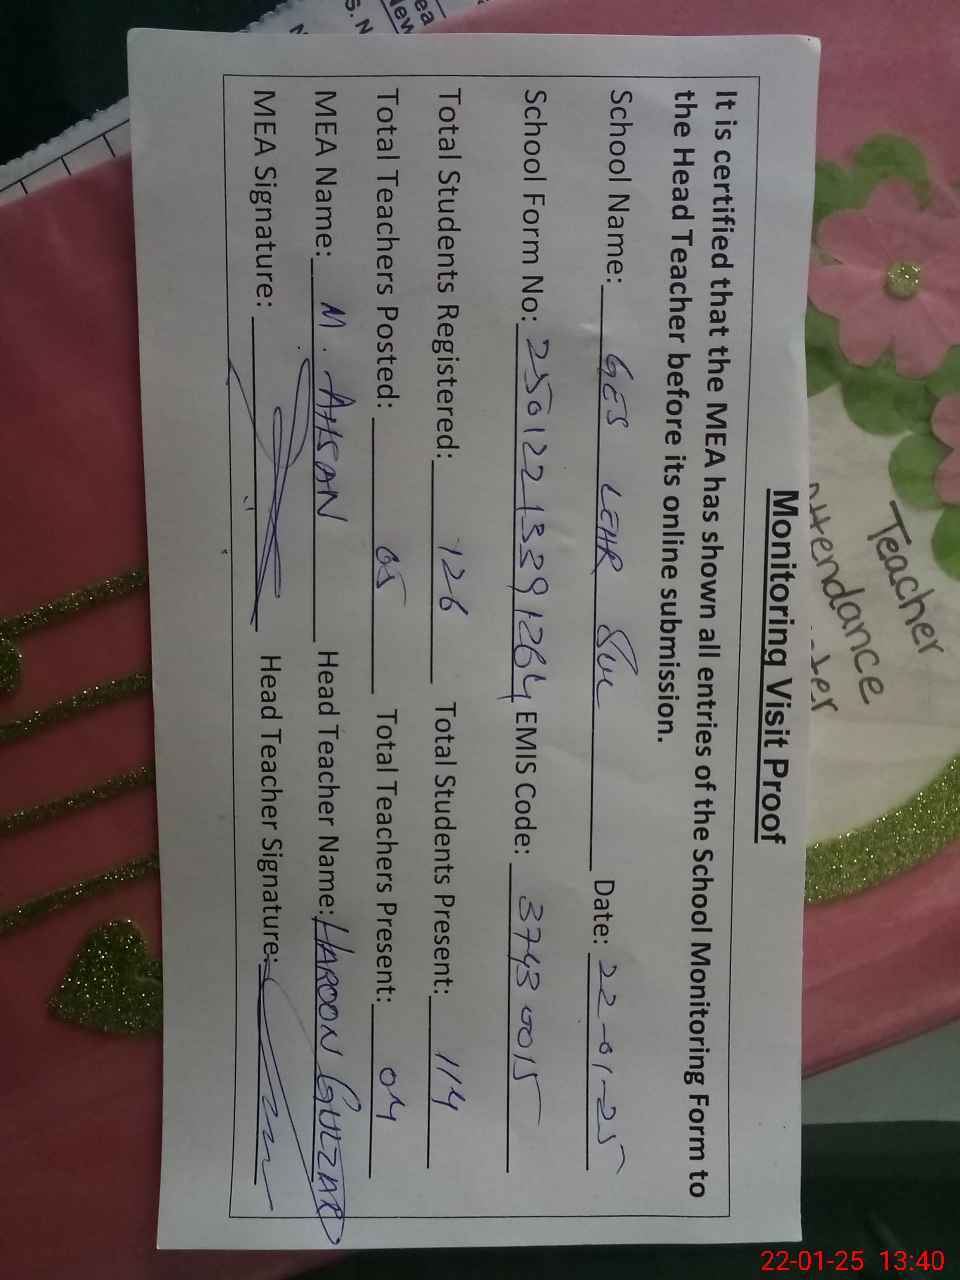 Monitoring Visit Proof
It is certified that the MEA has shown all entries of the School Monitoring Form to
the Head Teacher before its online submission.
School Name: GES LEHR SUL Date: 22-01-25
School Form No: 25012213391264 EMIS Code: 37430015
Total Students Registered: 126 Total Students Present: 114
Total Teachers Posted: 05 Total Teachers Present: 04
MEA Name: M. AHSAN Head Teacher Name: HAROON GULZAR
MEA Signature: Head Teacher Signature:
Teacher
Attendance
22-01-25 13:40